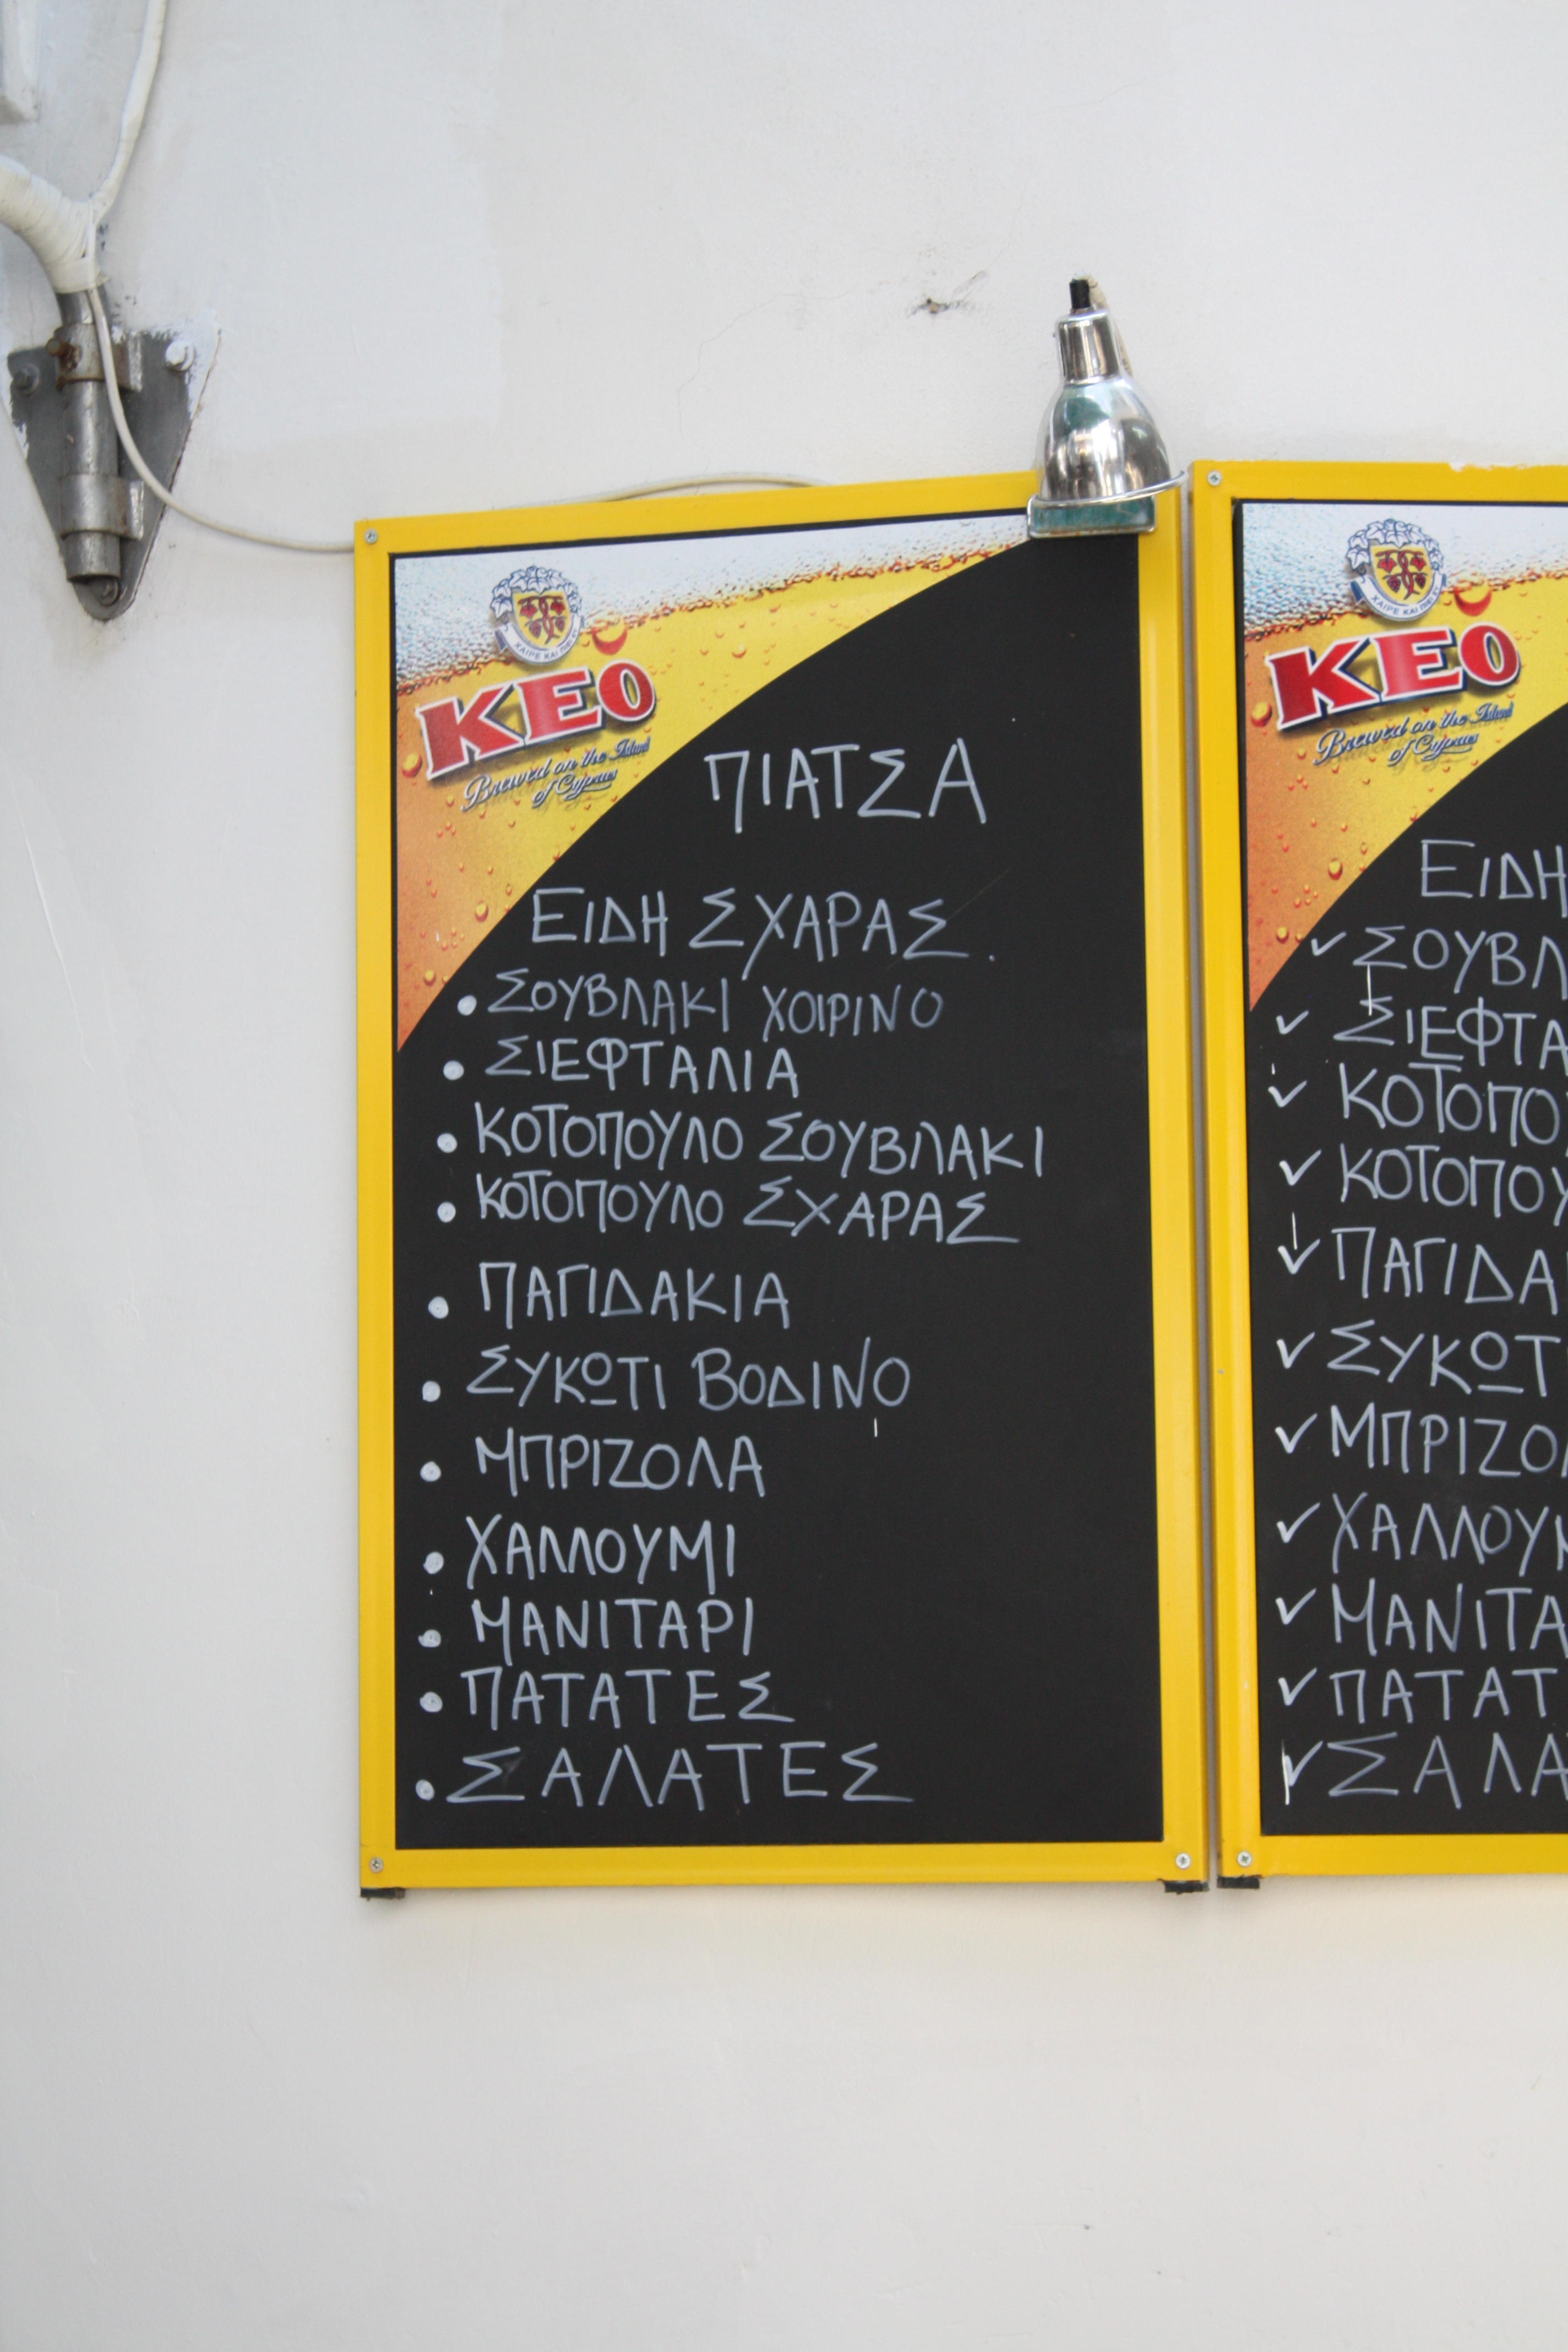 ΧΑΙΡΕ ΚΑΙ ΠΙΕΙ
KEO
Brewed on the Island
of Cyprus
ΠΙΑΤΣΑ
ΕΙΔΗ ΣΧΑΡΑΣ.
• ΣΟΥΒΛΑΚΙ ΧΟΙΡΙΝΟ
• ΣΙΕΦΤΑΛΙΑ
• ΚΟΤΟΠΟΥΛΟ ΣΟΥΒΛΑΚΙ
• ΚΟΤΟΠΟΥΛΟ ΣΧΑΡΑΣ
• ΠΑΓΙΔΑΚΙΑ
• ΣΥΚΩΤΙ ΒΟΔΙΝΟ
• ΜΠΡΙΖΟΛΑ
• ΧΑΛΛΟΥΜΙ
• ΜΑΝΙΤΑΡΙ
• ΠΑΤΑΤΕΣ
• ΣΑΛΑΤΕΣ
ΧΑΙΡΕ ΚΑΙ
KEO
Brewed on the Island
of Cyprus
ΕΙΔΗ
✓ ΣΟΥΒΛ
✓ ΣΙΕΦΤΑ
✓ ΚΟΤΟΠΟΥ
✓ ΚΟΤΟΠΟΥ
✓ ΠΑΓΙΔΑ
✓ ΣΥΚΩΤΙ
✓ ΜΠΡΙΖΟΛ
✓ ΧΑΛΛΟΥΜ
✓ ΜΑΝΙΤΑ
✓ ΠΑΤΑΤ
✓ ΣΑΛΑ